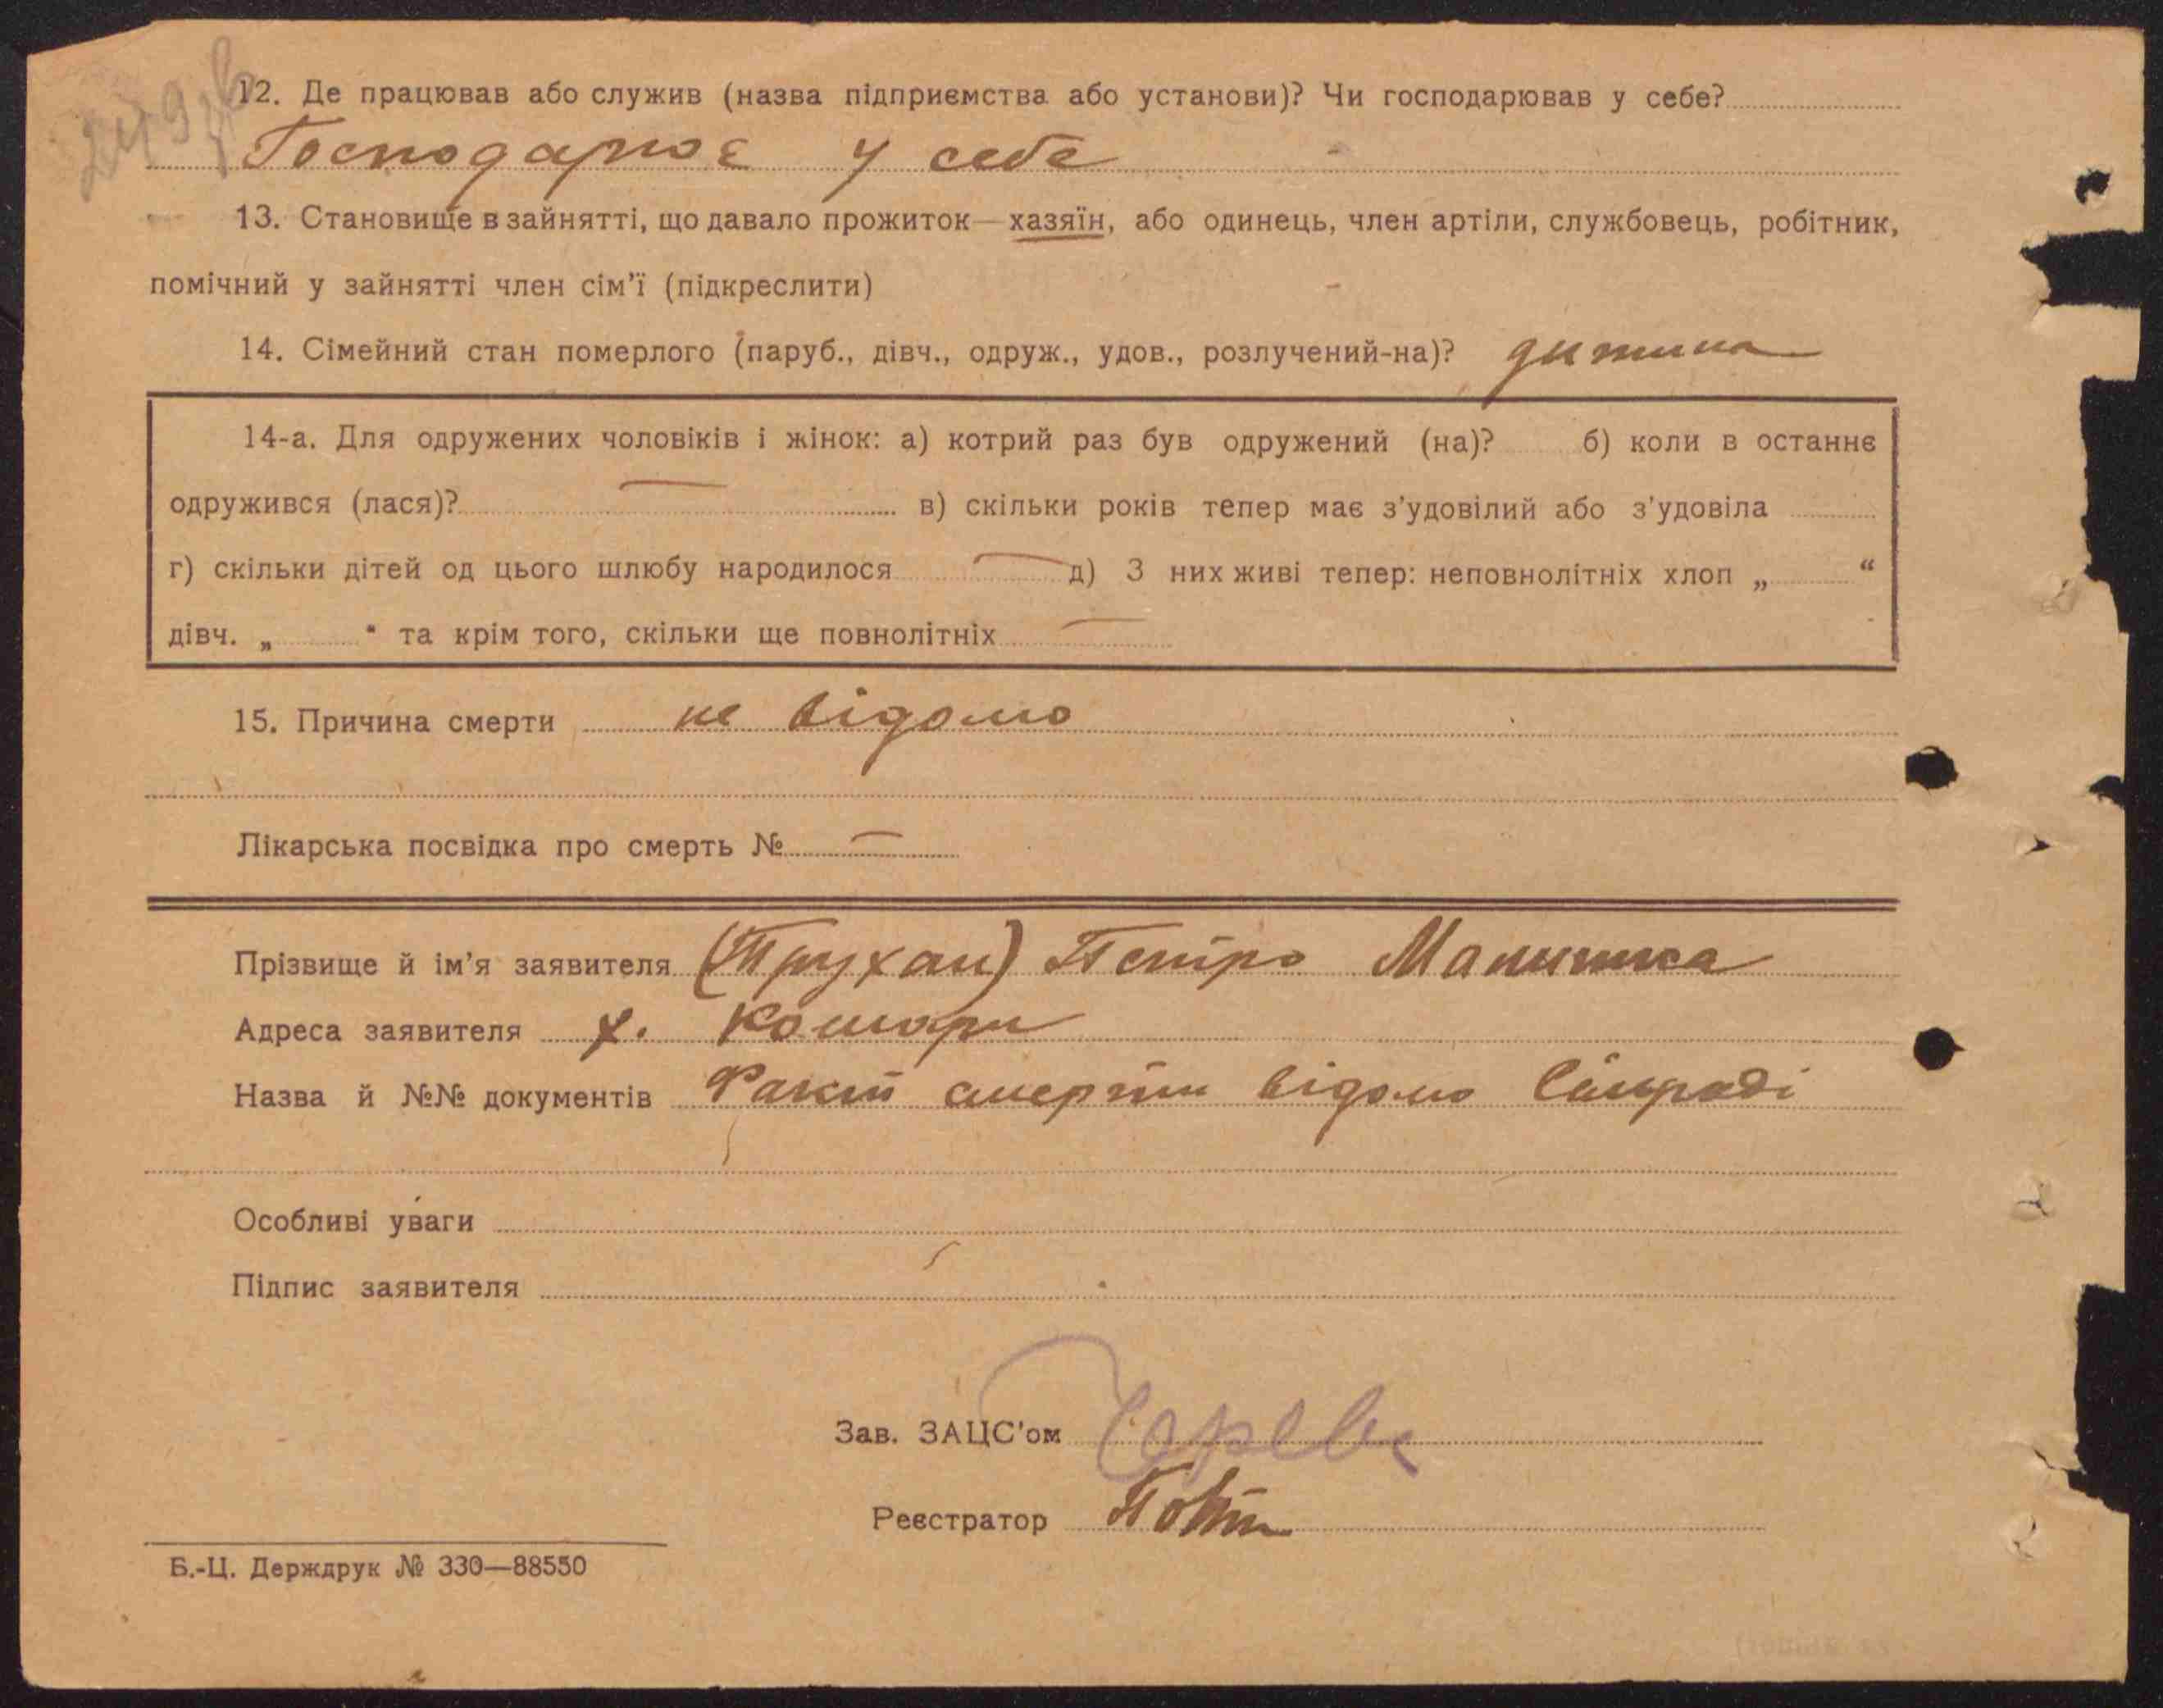 12. Де працював або служив (назва підприємства або установи)? Чи господарював у себе?
Господарює у себе
13. Становище в зайнятті, що давало прожиток — хазяїн, або одинець, член артіли, службовець, робітник,
помічний у зайнятті член сім'ї (підкреслити)
14. Сімейний стан померлого (паруб., дівч., одруж., удов., розлучений-на)? дитина
14-а. Для одружених чоловіків і жінок: а) котрий раз був одружений (на)? б) коли в останнє
одружився (лася)? — в) скільки років тепер має з'удовілий або з'удовіла
г) скільки дітей од цього шлюбу народилося — д) З них живі тепер: неповнолітніх хлоп „ “
дівч. „ “ та крім того, скільки ще повнолітніх —
15. Причина смерти не відомо
Лікарська посвідка про смерть № —
Прізвище й ім'я заявителя (Трухан) Петро
Адреса заявителя х. Кошари
Назва й №№ документів Факт смерти відомо Сільраді
Особливі уваги
Підпис заявителя
Зав. ЗАЦС'ом
Реєстратор
Б.-Ц. Держдрук № 330—88550